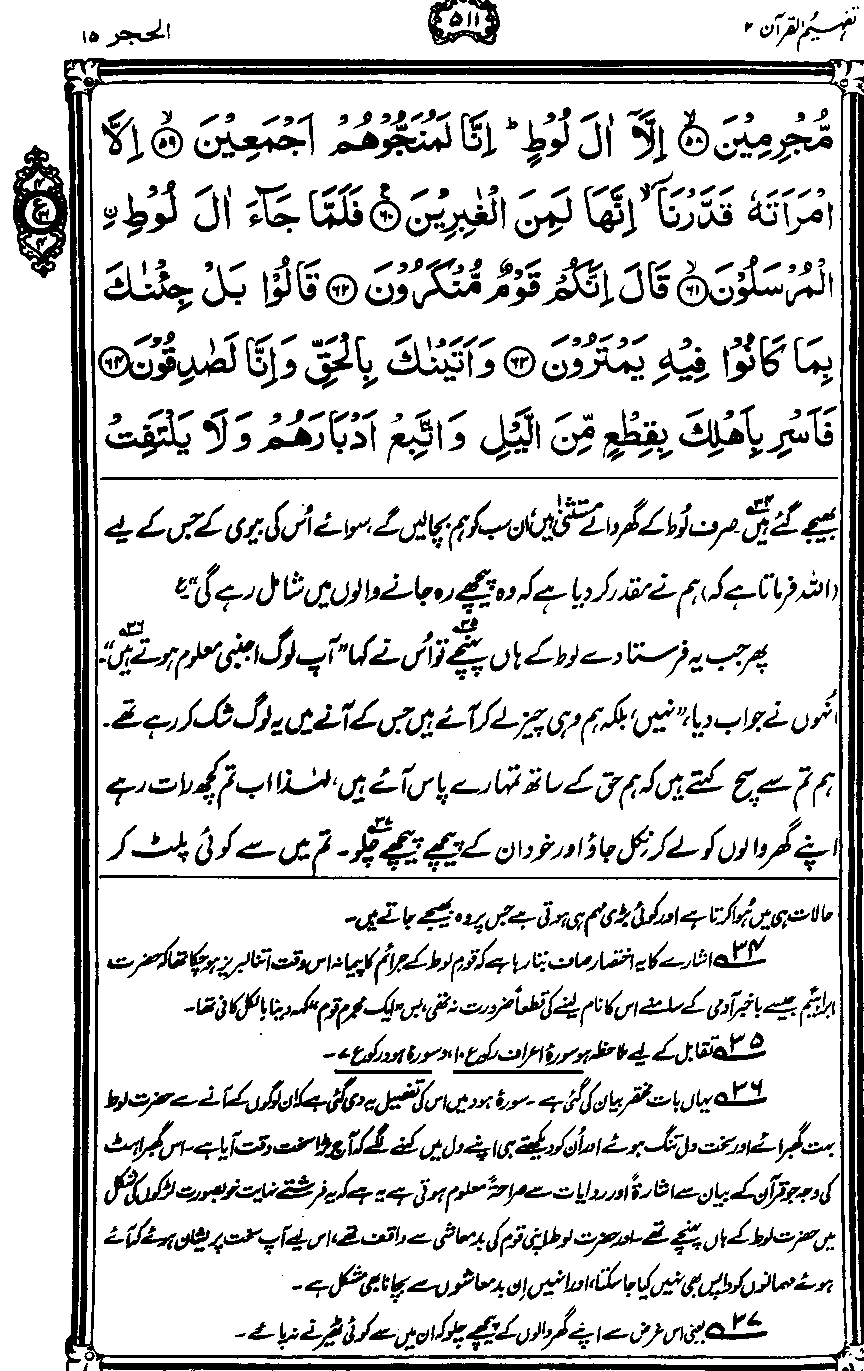 تفہیم القرآن ۲
۵۱۱
الحجر ۱۵
مُّجْرِمِیْنَ ﴿۵۸﴾ اِلَّاۤ اٰلَ لُوْطٍ ؕ اِنَّا لَمُنَجُّوْهُمْ اَجْمَعِیْنَ ﴿۵۹﴾ اِلَّا
امْرَاَتَهٗ قَدَّرْنَاۤ ۙ اِنَّهَا لَمِنَ الْغٰبِرِیْنَ ﴿۶۰﴾ فَلَمَّا جَآءَ اٰلَ لُوْطِ ِۨ
الْمُرْسَلُوْنَ ﴿۶۱﴾ قَالَ اِنَّكُمْ قَوْمٌ مُّنْكَرُوْنَ ﴿۶۲﴾ قَالُوْا بَلْ جِئْنٰكَ
بِمَا كَانُوْا فِیْهِ یَمْتَرُوْنَ ﴿۶۳﴾ وَاَتَیْنٰكَ بِالْحَقِّ وَاِنَّا لَصٰدِقُوْنَ ﴿۶۴﴾
فَاَسْرِ بِاَهْلِكَ بِقِطْعٍ مِّنَ الَّیْلِ وَاتَّبِعْ اَدْبَارَهُمْ وَلَا یَلْتَفِتْ
بھیجے گئے ہیں۳۴۔ صرف لُوط کے گھر والے مستثنیٰ ہیں، ان سب کو ہم بچالیں گے، سوائے اُس کی بیوی کے جس کے لیے
(اللہ فرماتا ہے کہ) ہم نے مقدر کر دیا ہے کہ وہ پیچھے رہ جانے والوں میں شامل رہے گی“ ؏
پھر جب یہ فرستادے لوط کے ہاں پہنچے۳۵ تو اُس نے کہا ”آپ لوگ اجنبی معلوم ہوتے ہیں۳۶“۔
اُنہوں نے جواب دیا، ”نہیں، بلکہ ہم وہی چیز لے کر آئے ہیں جس کے آنے میں یہ لوگ شک کر رہے تھے۔
ہم تم سے سچ کہتے ہیں کہ ہم حق کے ساتھ تمہارے پاس آئے ہیں، لہٰذا اب تم کچھ رات رہے
اپنے گھر والوں کو لے کر نکل جاؤ اور خود ان کے پیچھے پیچھے چلو۳۷۔ تم میں سے کوئی پلٹ کر
حالات ہی میں ہُوا کرتا ہے اور کوئی بڑی مہم ہی ہوتی ہے جس پر وہ بھیجے جاتے ہیں۔
۳۴ اشارے کا یہ اختصار صاف بتا رہا ہے کہ قومِ لوط کے جرائم کا پیمانہ اس وقت اتنا لبریز ہو چکا تھا کہ حضرت
ابراہیمؑ جیسے باخبر آدمی کے سامنے اس کا نام لینے کی قطعاً ضرورت نہ تھی، بس ”ایک مجرم قوم“ کہہ دینا بالکل کافی تھا۔
۳۵ تقابل کے لیے ملاحظہ ہو سورۂ اعراف رکوع ۱۰، و سورۂ ہود رکوع ۷۔
۳۶ یہاں بات مختصر بیان کی گئی ہے۔ سورۂ ہود میں اس کی تفصیل یہ دی گئی ہے کہ ان لوگوں کے آنے سے حضرت لوط
بہت گھبرائے اور سخت دل تنگ ہوئے اور اُن کو دیکھتے ہی اپنے دل میں کہنے لگے کہ آج بڑا سخت وقت آیا ہے۔ اس گھبراہٹ
کی وجہ جو قرآن کے بیان سے اشارۃً اور روایات سے صراحۃً معلوم ہوتی ہے یہ ہے کہ یہ فرشتے نہایت خوبصورت لڑکوں کی شکل
میں حضرت لوط کے ہاں پہنچے تھے۔ اور حضرت لوط اپنی قوم کی بدمعاشی سے واقف تھے، اس لیے آپ سخت پریشان ہوئے کہ آئے
ہوئے مہمانوں کو واپس بھی نہیں کیا جا سکتا، اور انہیں اِن بدمعاشوں سے بچانا بھی مشکل ہے۔
۳۷ یعنی اس غرض سے اپنے گھر والوں کے پیچھے چلو کہ ان میں سے کوئی ٹھیرنے نہ پائے۔